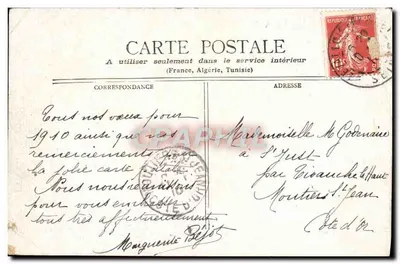 CARTE POSTALE
A utiliser seulement dans le service intérieur
(France, Algérie, Tunisie)
CORRESPONDANCE
ADRESSE
Tous nos vœux pour
1910 ainsi que nos
remerciements pour
la jolie carte
Nous nous réunissons
pour vous embrasser
tous très affectueusement
Marguerite Béjot
Mademoiselle M Godenaire
à St Just
par
Moutiers St Jean
Côte d'Or